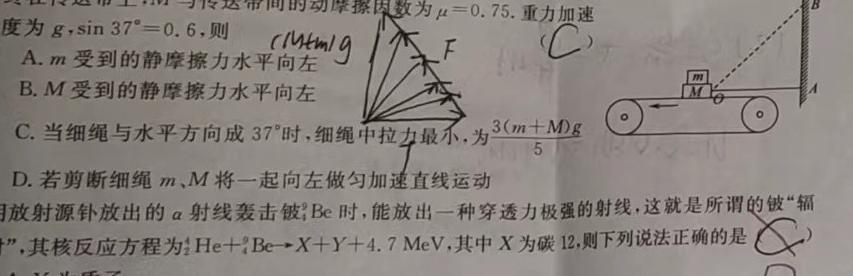 传送带上,M与传送带间的动摩擦因数为μ=0.75.重力加速
度为g,sin 37°=0.6,则
(C)
A. m受到的静摩擦力水平向左
(M+m)g
F
B. M受到的静摩擦力水平向左
C. 当细绳与水平方向成37°时,细绳中拉力最小,为3(m+M)g/5
T
D. 若剪断细绳m、M将一起向左做匀加速直线运动
用放射源钋放出的α射线轰击铍⁹₄Be时,能放出一种穿透力极强的射线,这就是所谓的铍“辐
”,其核反应方程为⁴₂He+⁹₄Be→X+Y+4.7 MeV,其中X为碳12,则下列说法正确的是( )
B
m
M
O
A